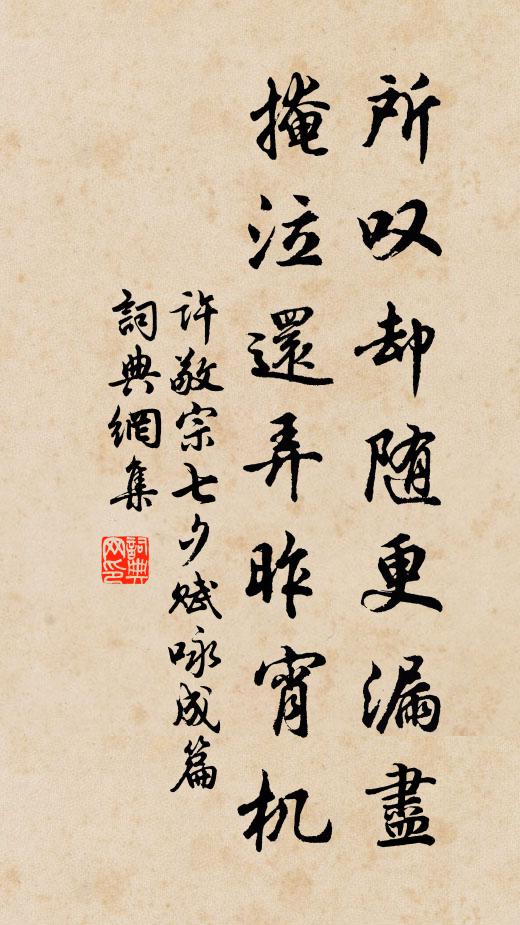 所叹却随更漏盡
掩泣還弄昨宵机
许敬宗七夕赋咏成篇
詞典網集
詞典网印